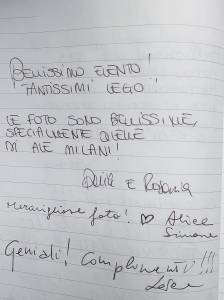 BELLISSIMO EVENTO!
TANTISSIMI LEGO!
LE FOTO SONO BELLISSIME,
SPECIALMENTE QUELLE
DI ALE MILANI!
E
Meravigliose foto! ♡ Alice
Simone
Geniali! Complimenti!!!